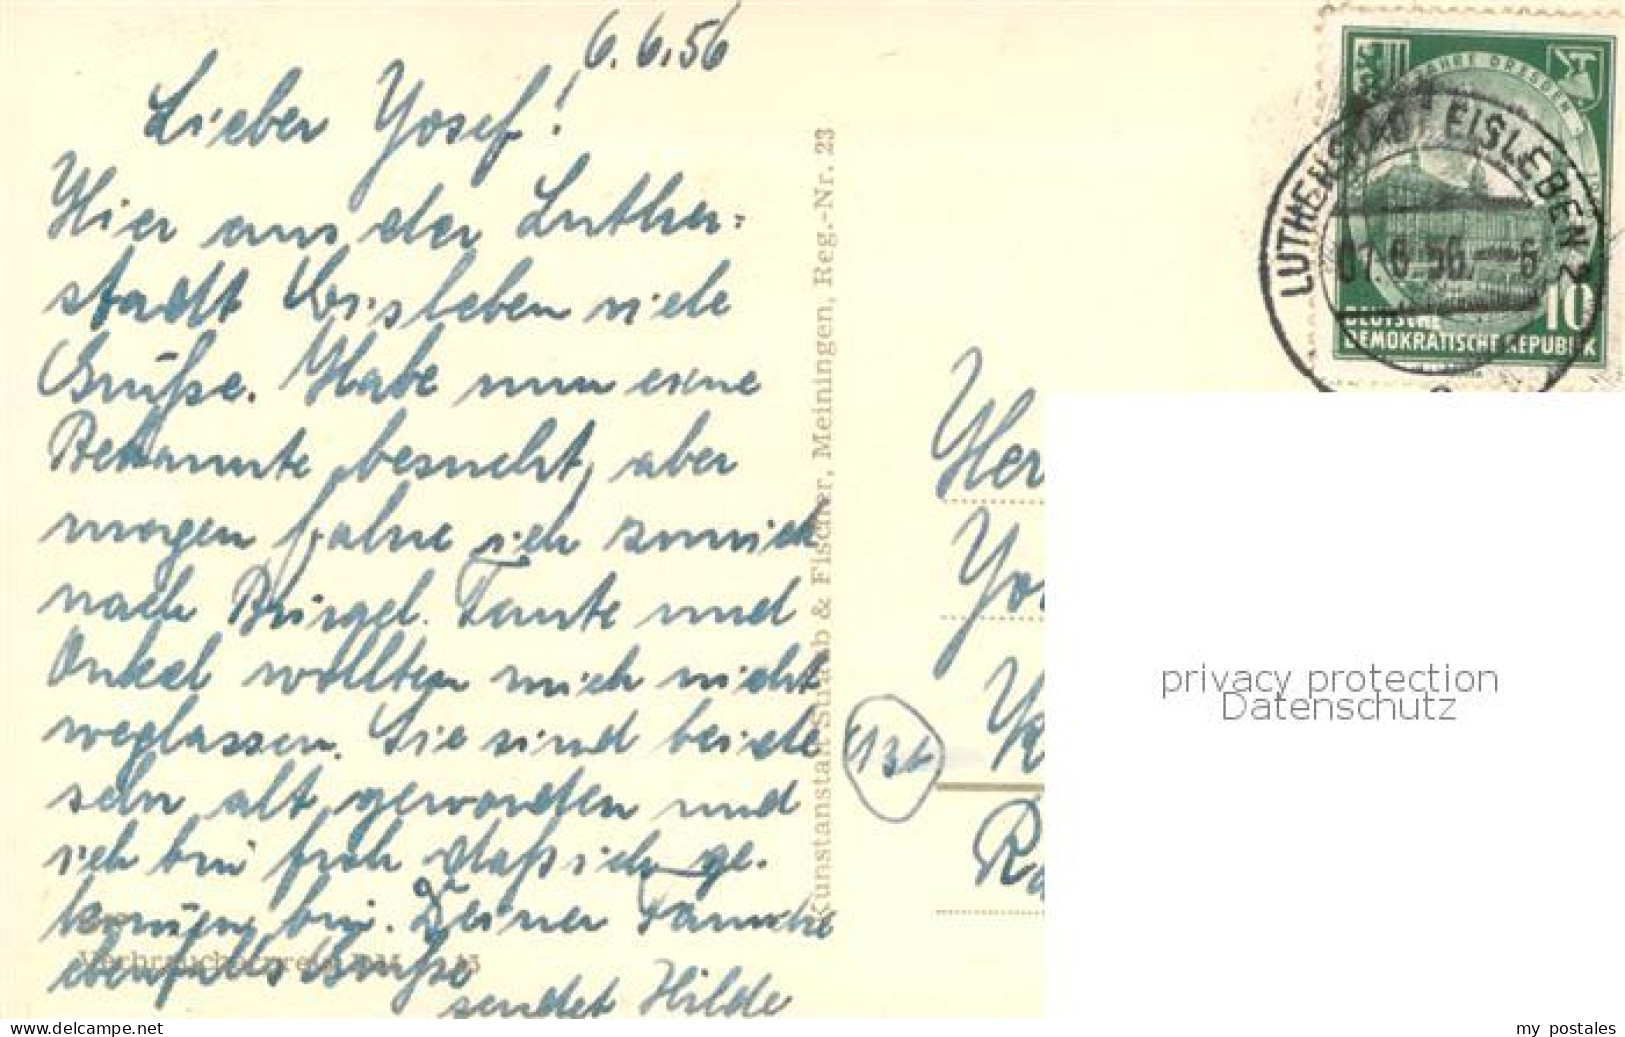 6.6.56
Lieber Yosef!
Hier aus der Luther=
stadt Eisleben viele
Grüße. Habe nun eine
Bekannte besucht, aber
morgen fahre ich zurück
nach Bürgel. Tante und
Onkel wollten mich nicht
weglassen. Sie sind beide
sehr alt geworden und
ich bin froh daß ich ge-
kommen bin. Deiner Familie
ebenfalls Grüße
sendet Hilde
Kunstanstalt Straub & Fischer, Meiningen, Reg.-Nr. 23
JAHRE DRESDEN
10
DEUTSCHE
DEMOKRATISCHE REPUBLIK
LUTHERSTADT EISLEBEN 2
6.56.
Her
Yo
136
privacy protection
Datenschutz
www.delcampe.net
my postales